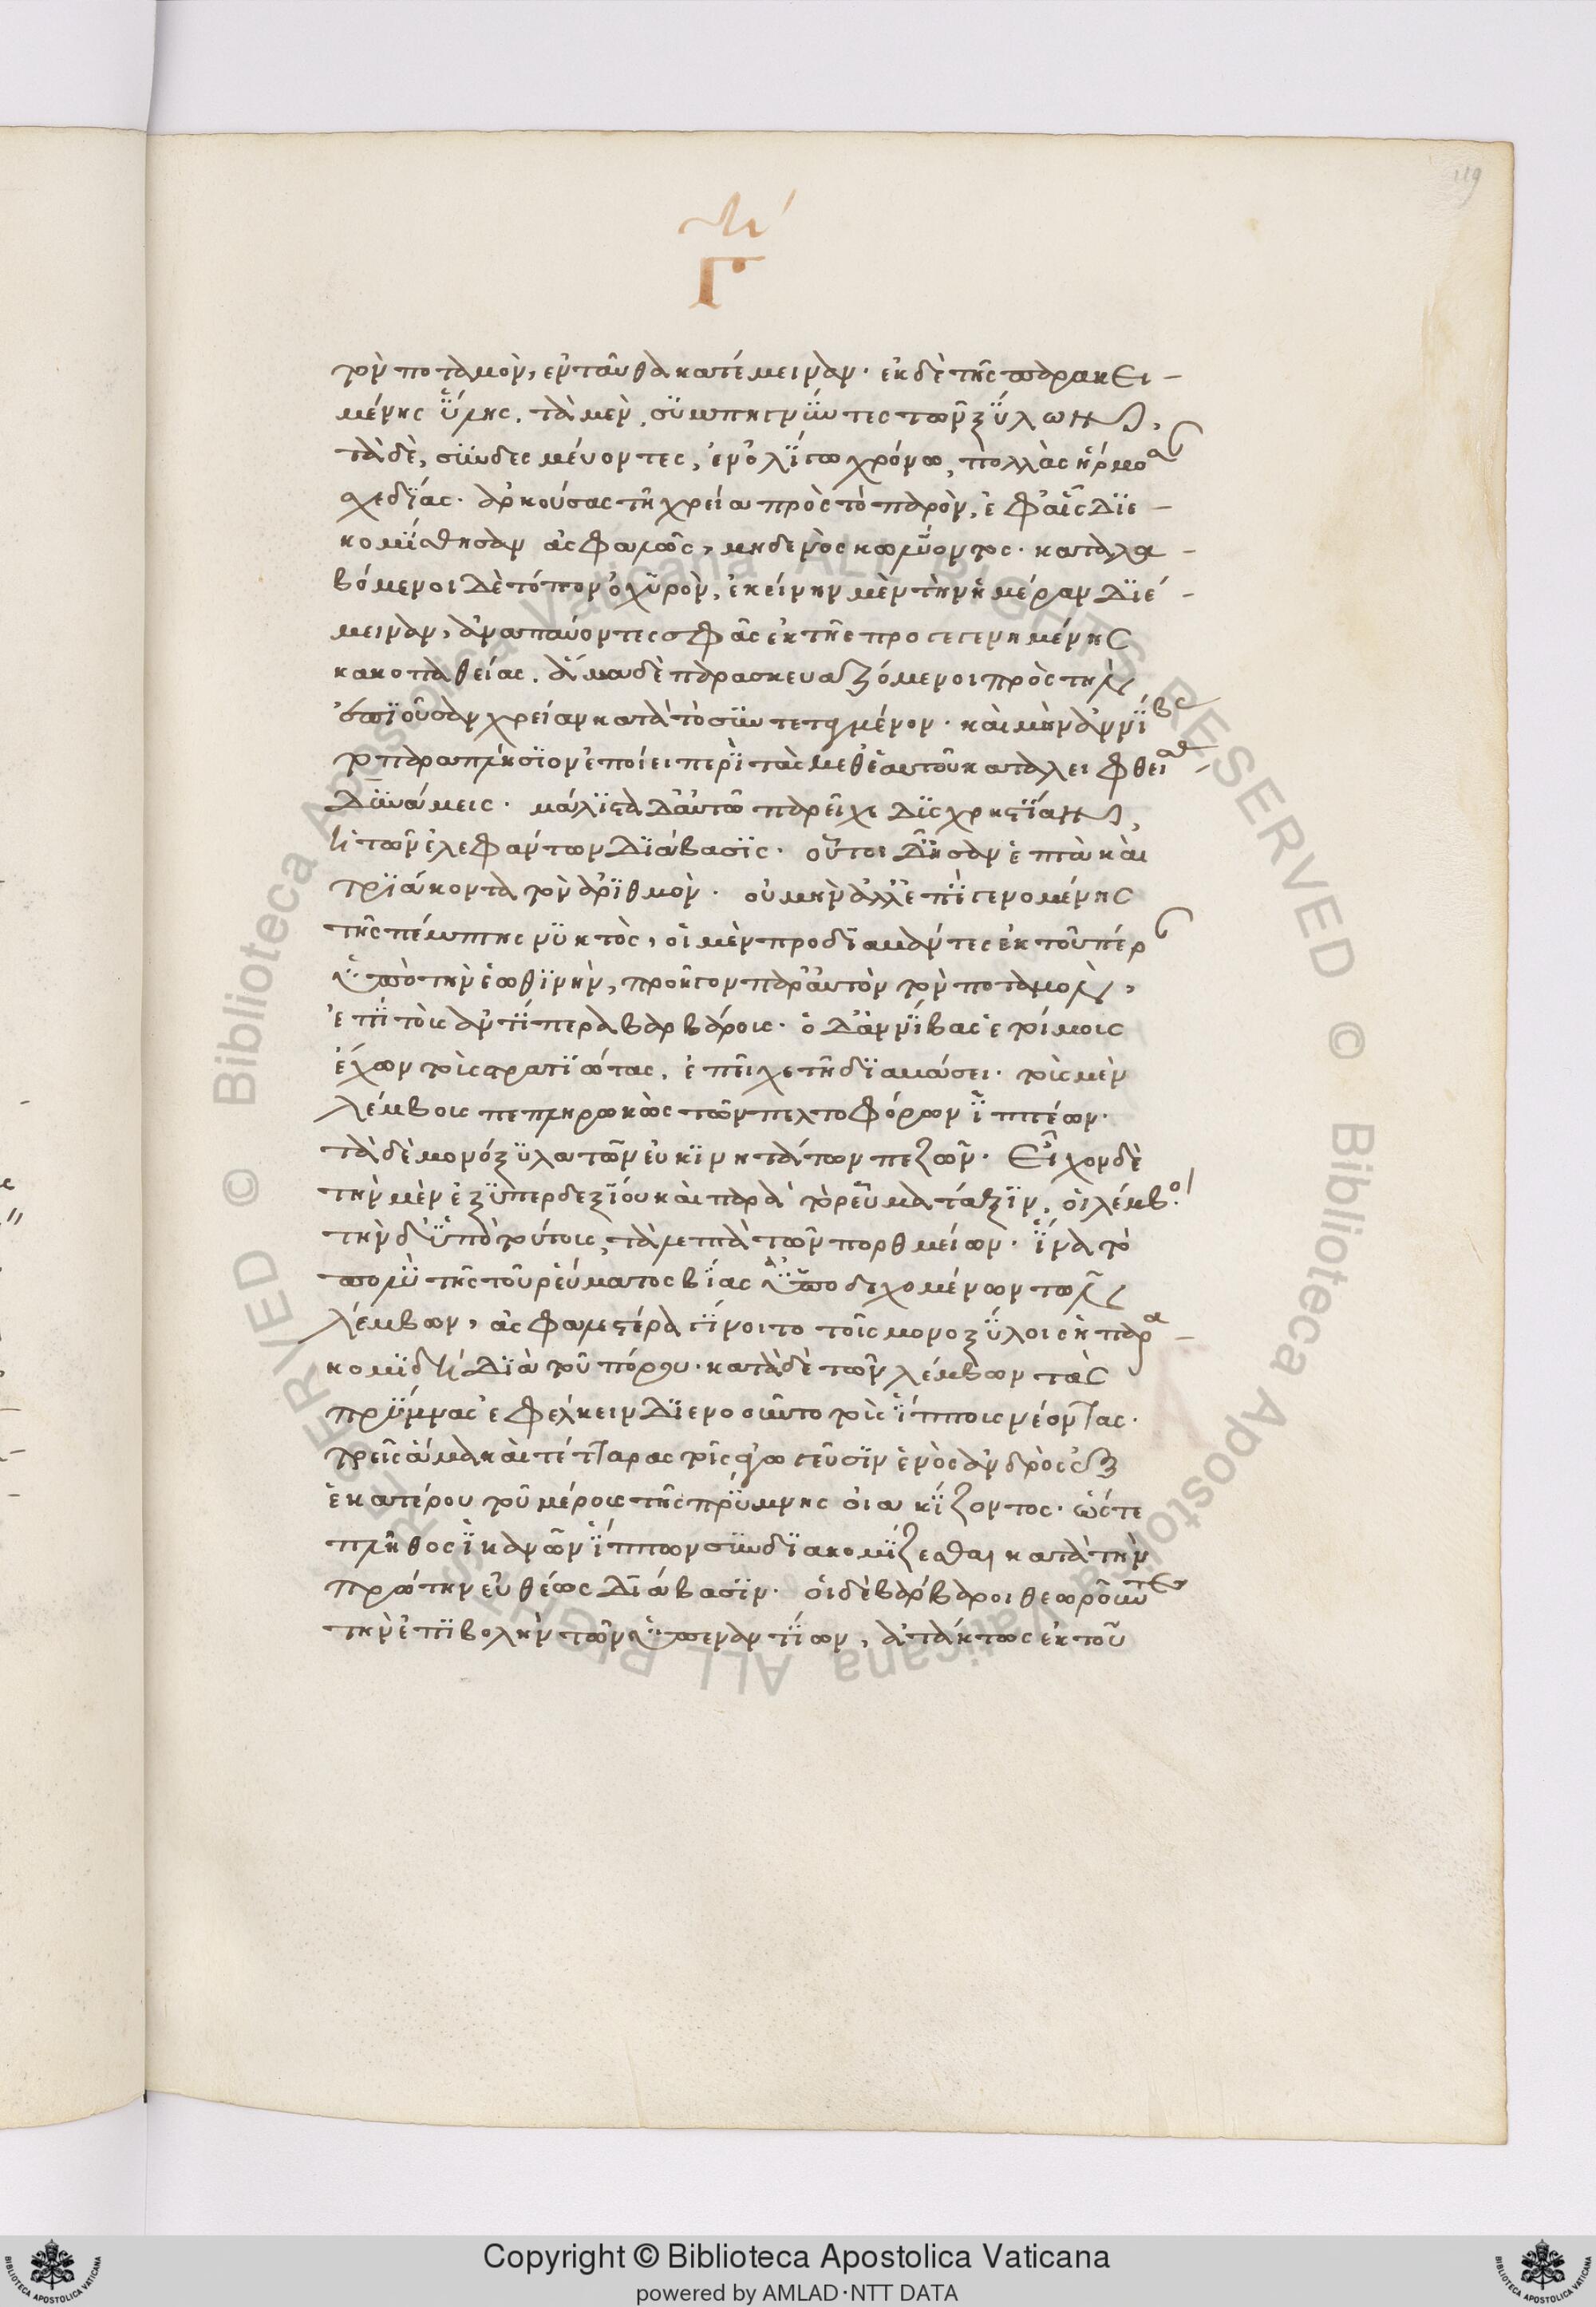 119
Γ
τὸν ποταμὸν, ἐνταῦθα κατέμειναν· ἐκ δὲ τῆς παρακει-
μένης ὕλης, τὰ μὲν συμπηγνύντες τῶν ξύλων,
τὰ δὲ, συνδεσμεύοντες, ἐν ὀλίγω χρόνω, πολλὰς ἥρμοσ
σχεδίας· ἀρκούσας τῆ χρεία πρὸς τὸ παρὸν, ἐφ' αἷς διε-
κομίσθησαν ἀσφαλῶς, μηδενὸς κωλύοντος· καταλα-
βόμενοι δὲ τόπον ὀχυρὸν, ἐκείνην μὲν τὴν ἡμέραν διέ-
μειναν, ἀναπαύοντες σφᾶς ἐκ τῆς προγεγενημένης
κακοπαθείας. ἅμα δὲ παρασκευαζόμενοι πρὸς τὴν
ἐπιοῦσαν χρείαν κατὰ τὸ συντεταγμένον· καὶ μὴν ἀννίβας
τὸ παραπλήσιον ἐποίει περὶ τὰς μεθ' ἑαυτοῦ καταλειφθεί
δυνάμεις· μάλιστα δ' αὐτῶ παρεῖχε δυσχρηστίαν,
ἡ τῶν ἐλεφάντων διάβασις· οὗτοι δ' ἦσαν ἑπτὰ καὶ
τριάκοντα τὸν ἀριθμὸν· οὐ μὴν ἀλλ' ἐπιγενομένης
τῆς πέμπτης νυκτὸς, οἱ μὲν προδιαβάντες ἐκ τοῦ πέρ
ὑπὸ τὴν ἑωθινὴν, προῆγον παρ' αὐτὸν τὸν ποταμὸν,
ἐπὶ τοὺς ἀντίπερα βαρβάρους· ὁ δ' ἀννίβας ἑτοίμους
ἔχων τοὺς στρατιώτας, ἐπεῖχε τῆ διαβάσει· τοὺς μὲν
λέμβους πεπληρωκὼς τῶν πελτοφόρων ἱππέων·
τὰ δὲ μονόξυλα τῶν εὐκινητάτων πεζῶν· εἶχον δὲ
τὴν μὲν ἐξ ὑπερδεξίου καὶ παρὰ τὸ ῥεῦμα τάξιν, οἱ λέμβοι
τὴν δ' ὑπὸ τούτοις, τὰ λεπτὰ τῶν πορθμείων· ἵνα τὸ
πολὺ τῆς τοῦ ῥεύματος βίας ἀποδεχομένων τῶν
λέμβων, ἀσφαλεστέρα γίνοιτο τοῖς μονοξύλοις ἡ παρα-
κομιδὴ διὰ τοῦ πόρου· κατὰ δὲ τῶν λέμβων τὰς
πρύμνας ἐφέλκειν διενοοῦντο τοὺς ἵππους νέοντας·
τρεῖς ἅμα καὶ τέτταρας τοῖς ἀγωγεῦσιν ἑνὸς ἀνδρὸς ἐξ
ἑκατέρου τοῦ μέρους τῆς πρύμνης οἰακίζοντος· ὥστε
πλῆθος ἱκανῶν ἵππων συνδιακομίζεσθαι κατὰ τὴν
πρώτην εὐθέως διάβασιν· οἱ δὲ βάρβαροι θεωροῦντες
τὴν ἐπιβολὴν τῶν ὑπεναντίων, ἀτάκτως ἐκ τοῦ
Biblioteca Apostolica Vaticana ALL RIGHTS RESERVED ©
Copyright © Biblioteca Apostolica Vaticana
powered by AMLAD·NTT DATA